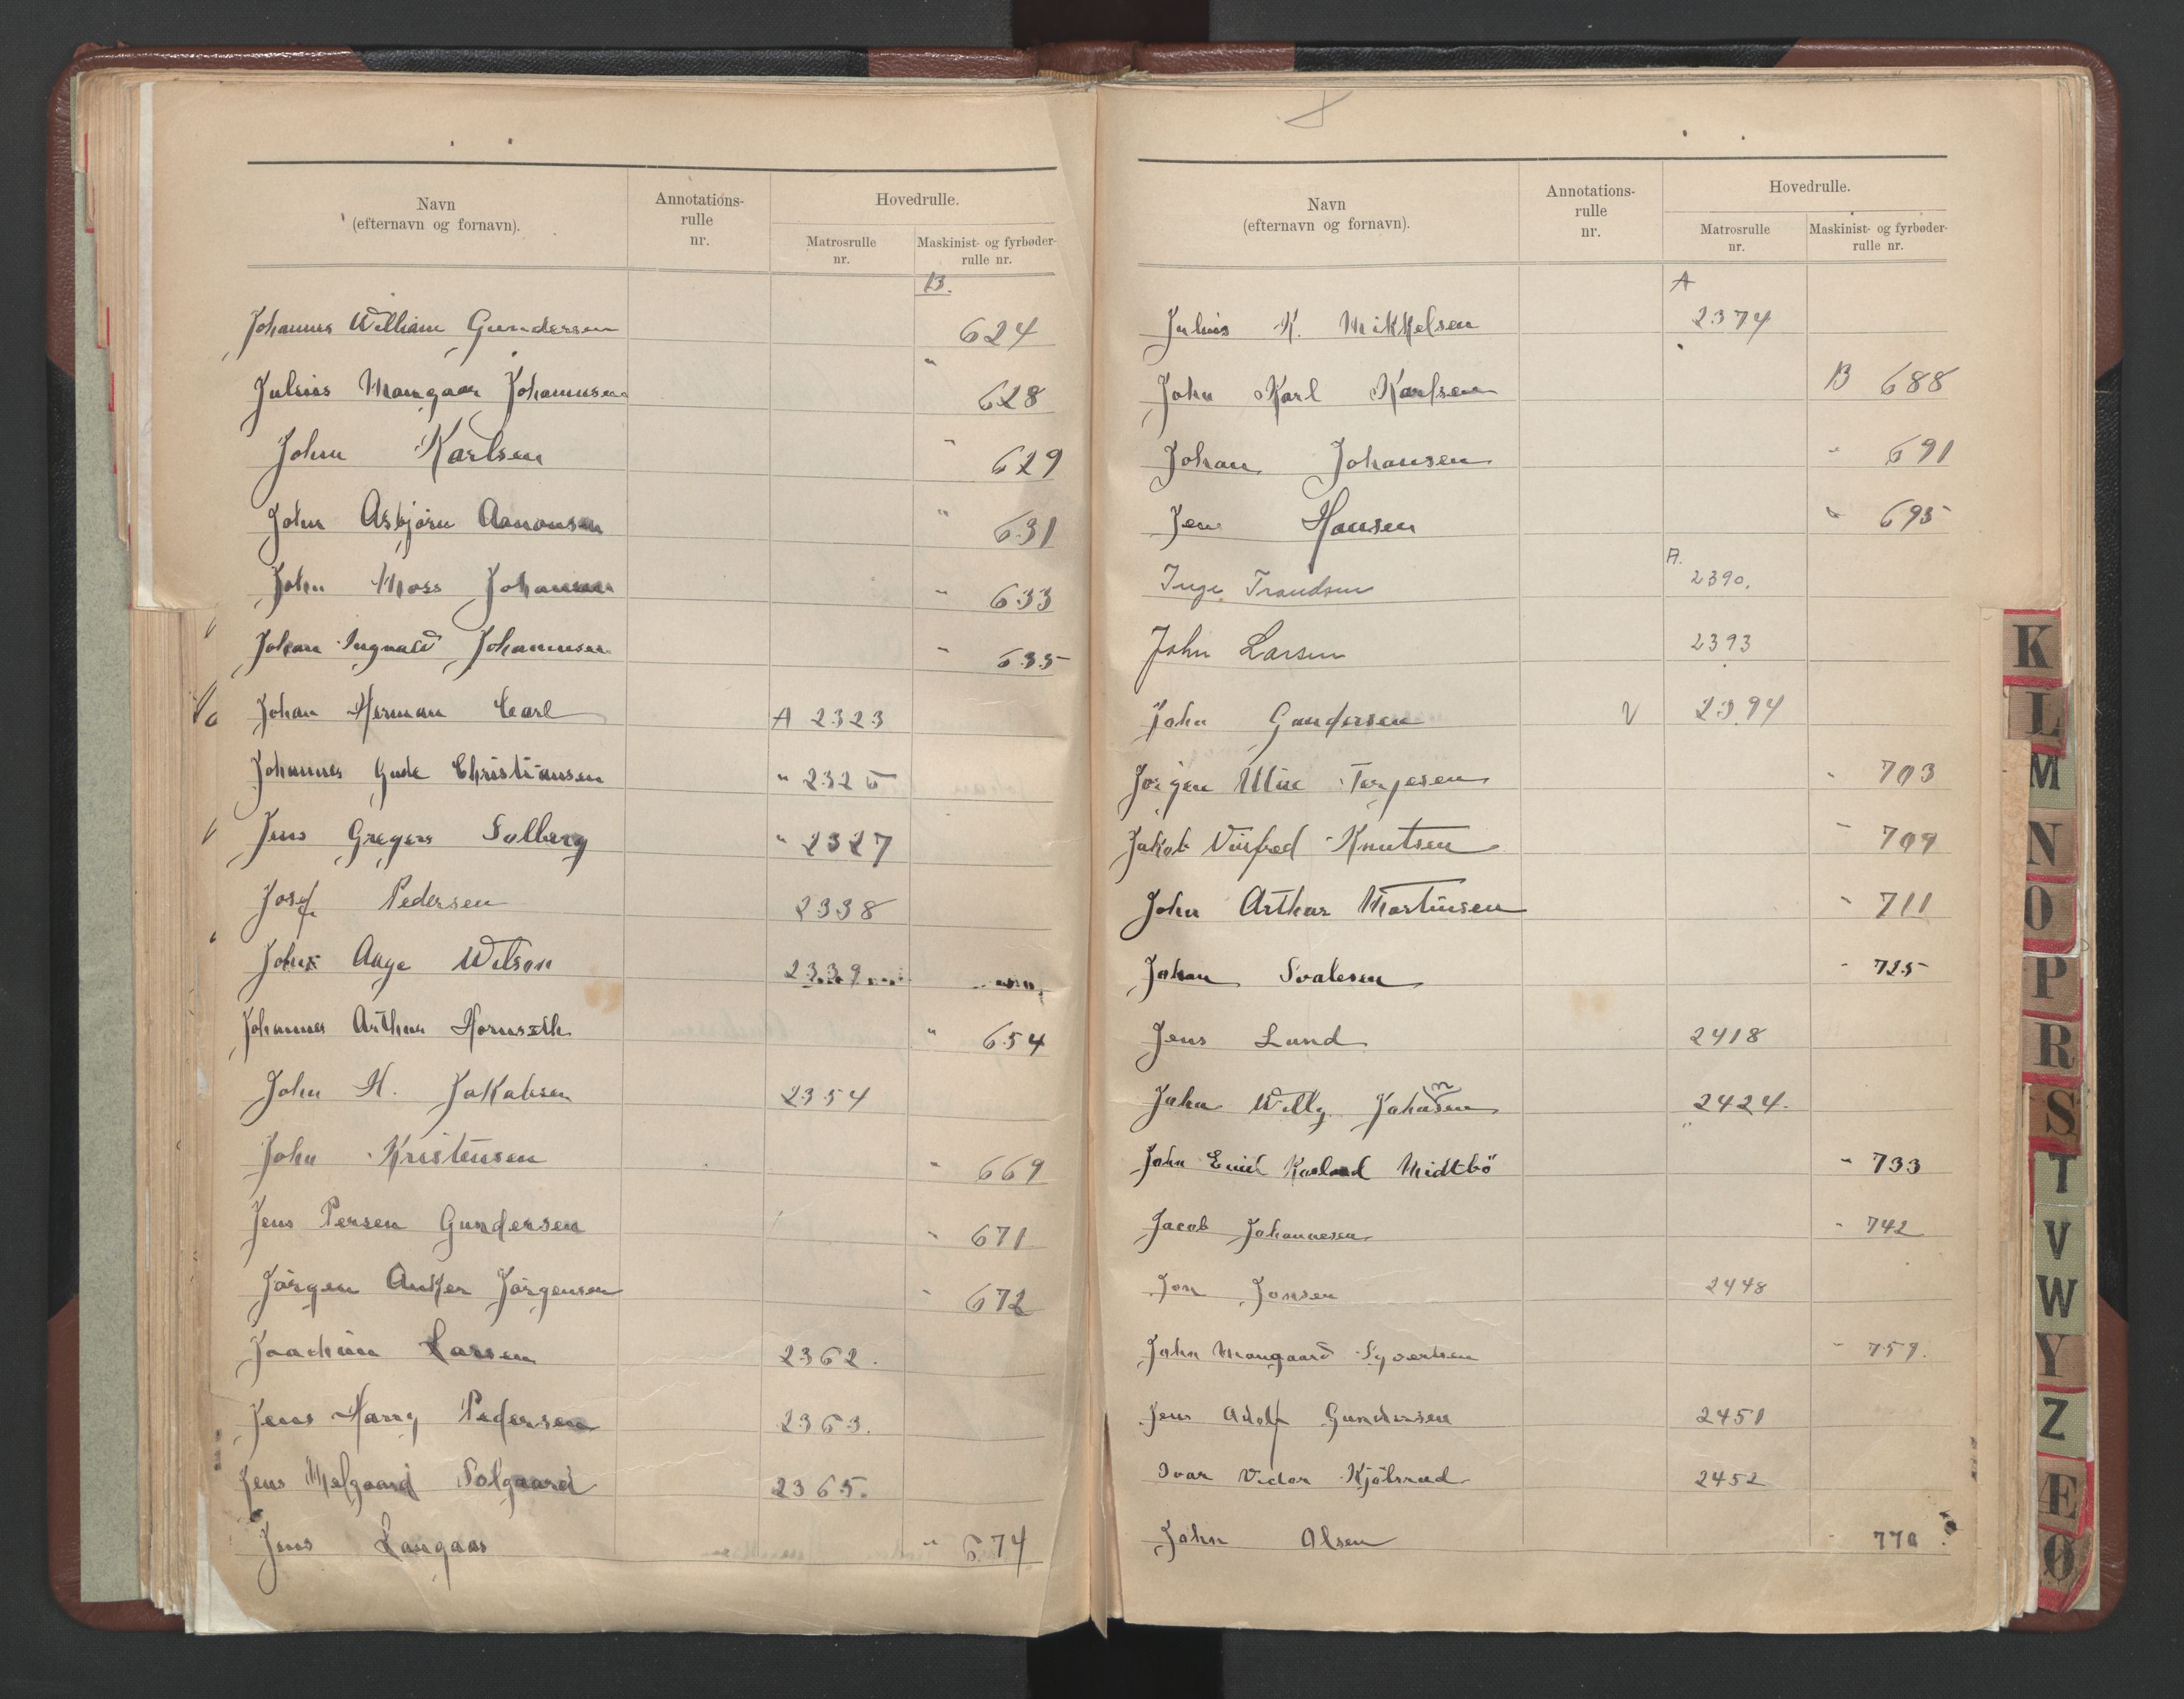 Navn
(efternavn og fornavn).
Annotations-
rulle
nr.
Hovedrulle.
Matrosrulle
nr.
Maskinist- og fyrbøder-
rulle nr.
B.
Johannes William Gundersen 624
Julius Mangaar Johannsen " 628
John Karlsen " 629
John Asbjørn Aanonsen " 631
John Moss Johansen " 633
Johan Ingvald Johannsen " 635
Johan Herman Carl A 2323
Johannes Gude Christiansen " 2325
Jens Gregers Solberg " 2327
Josef Pedersen 2338
John Aage Wilson 2339
Johannes Arthur Hornseth " 654
John H. Jakobsen 2354
John Kristensen " 669
Jens Persen Gundersen " 671
Jörgen Anker Jörgensen " 672
Joachim Larsen 2362.
Jens Harry Pedersen 2363.
Jens Melgaard Solgaard 2365.
Jens Langaas " 674
J
Navn
(efternavn og fornavn).
Annotations-
rulle
nr.
Hovedrulle.
Matrosrulle
nr.
Maskinist- og fyrbøder-
rulle nr.
A
Julius K. Mikkelsen 2374
John Karl Karlsen B 688
Johan Johansen " 691
Jens Hansen " 695
A.
Inge Trondsen 2390.
John Larsen 2393
John Gundersen V 2394
Jörgen Terjesen " 703
Jakob Vinfred Knutsen " 709
John Arthur Martinsen " 711
Johan Svalesen " 725
Jens Lund 2418
John Willy Johansen 2424.
John Emil Midtbö " 733
Jacob Johannesen " 742
Jon Jonsen 2448
John Mangaard Syvertsen " 759.
Jens Adolf Gundersen 2451
Ivar Vidar Kjölsrud 2452
John Olsen " 770
K
L
M
N
O
P
R
S
T
V
W
Y
Z
Æ
Ø